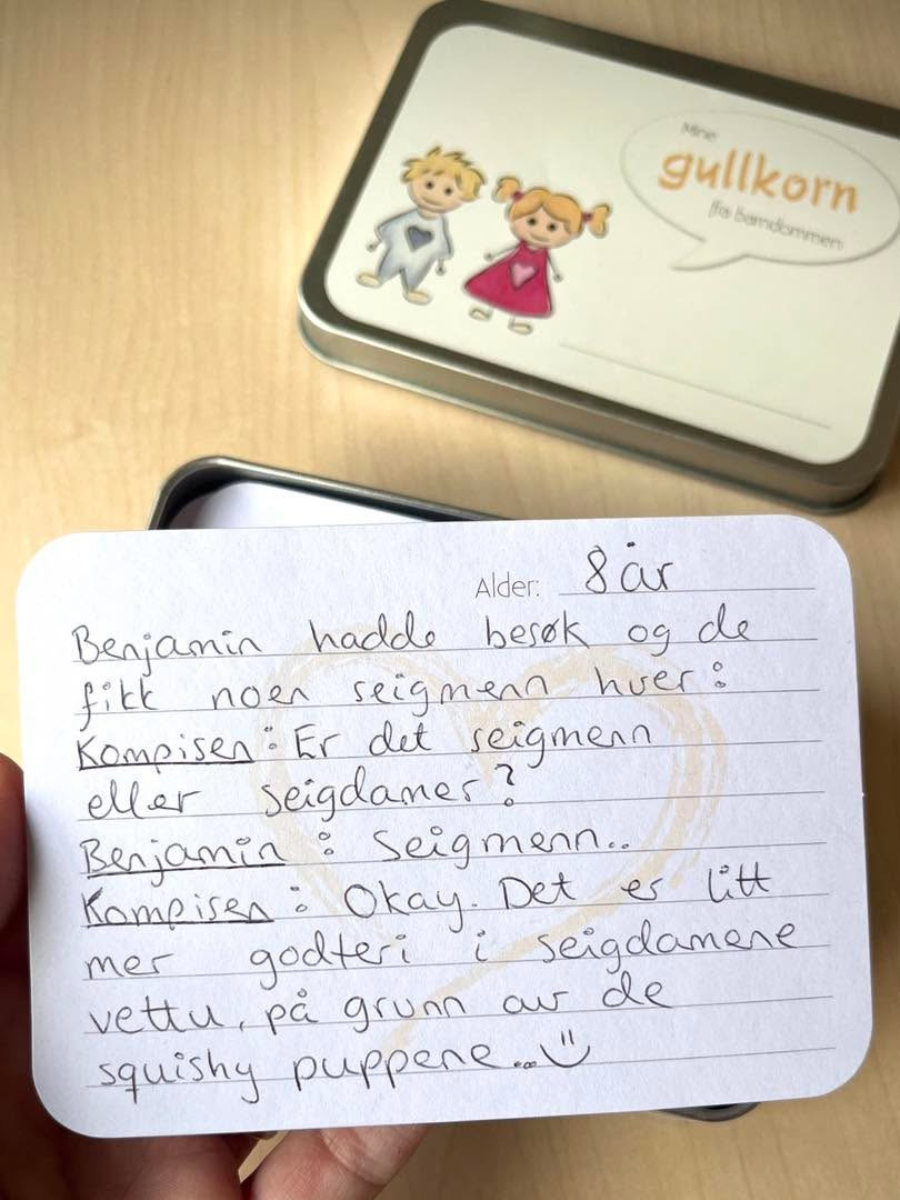 Mine
gullkorn
fra barndommen
Alder: 8 år
Benjamin hadde besøk og de
fikk noen seigmenn hver:
Kompisen: Er det seigmenn
eller seigdamer?
Benjamin: Seigmenn..
Kompisen: Okay. Det er litt
mer godteri i seigdamene
vettu, på grunn av de
squishy puppene...